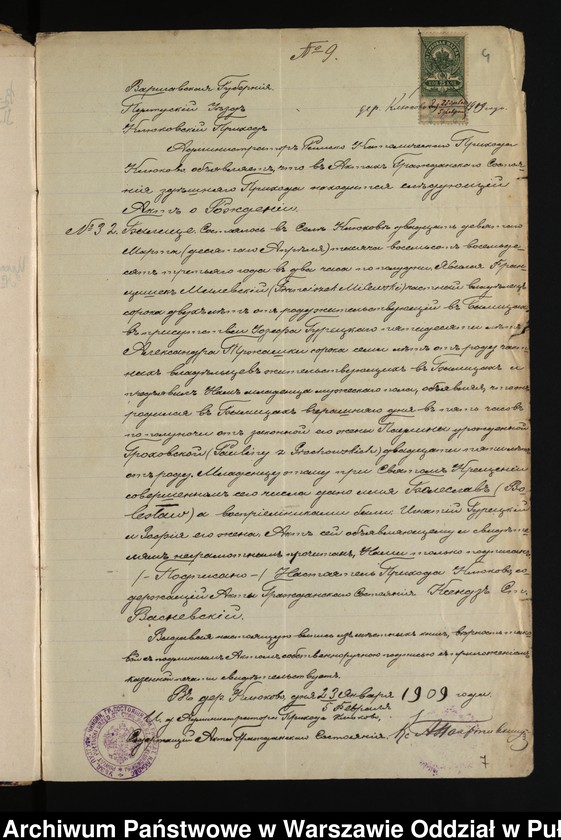 № 9.
4
Варшавская Губернія.
Пултускій Уѣздъ
Клюковскій Приходъ
дер. 1909 года
Администраторъ Римско Католическаго Прихода
Клюково объявляетъ, что въ Актахъ Гражданскаго Состоя-
нія здѣшняго Прихода находится слѣдующій
Актъ о Рожденіи.
№ 32. Состоялось въ Селѣ Клюковѣ двадцать девятаго
Марта (десятаго Апрѣля) тысяча восемьсотъ восемьде-
сятъ третьяго года въ два часа по полудни. Явился Фран-
цишекъ Милевскій (Franciszek Milewski) частный владѣлецъ
сорока двухъ лѣтъ отъ роду жительствующій въ
въ присутствіи Іозефа Гурецкаго пятидесяти лѣтъ
Александра сорока семи лѣтъ отъ роду част-
ныхъ владѣльцевъ жительствующихъ въ и
предъявилъ Намъ младенца мужескаго пола, объявляя, что онъ
родился въ вчерашняго дня въ пять часовъ
по полуночи отъ законной его жены Паулины урожденной
Гроховской (Pauliny z Grochowskich) двадцати пяти лѣтъ
отъ роду. Младенцу этому при Святомъ Крещеніи
совершенномъ сего числа дано имя Болеславъ (Bo-
lesław) а воспріемниками были: Игнатій Гурецкій
и Зофія его жена. Актъ сей объявляющему и свидѣте-
лямъ неграмотнымъ прочитанъ, Нами только подписанъ
/-Подписано-/ Настоятель Прихода Клюковъ, со-
держащій Акты Гражданскаго Состоянія Ксендзъ
Васневскій.
Выдавая настоящую выпись изъ книгъ, вѣрность
съ подлиннымъ Актомъ собственноручною подписью съ приложеніемъ
казенной печати свидѣтельствую.
Въ дер. Клюковъ, дня 23 Января 1909 года
5 Февраля
М. п. Администраторъ Прихода Клюковъ,
Содержащій Акты Гражданскаго Состоянія Кс.
7
Archiwum Państwowe w Warszawie Oddział w Puł